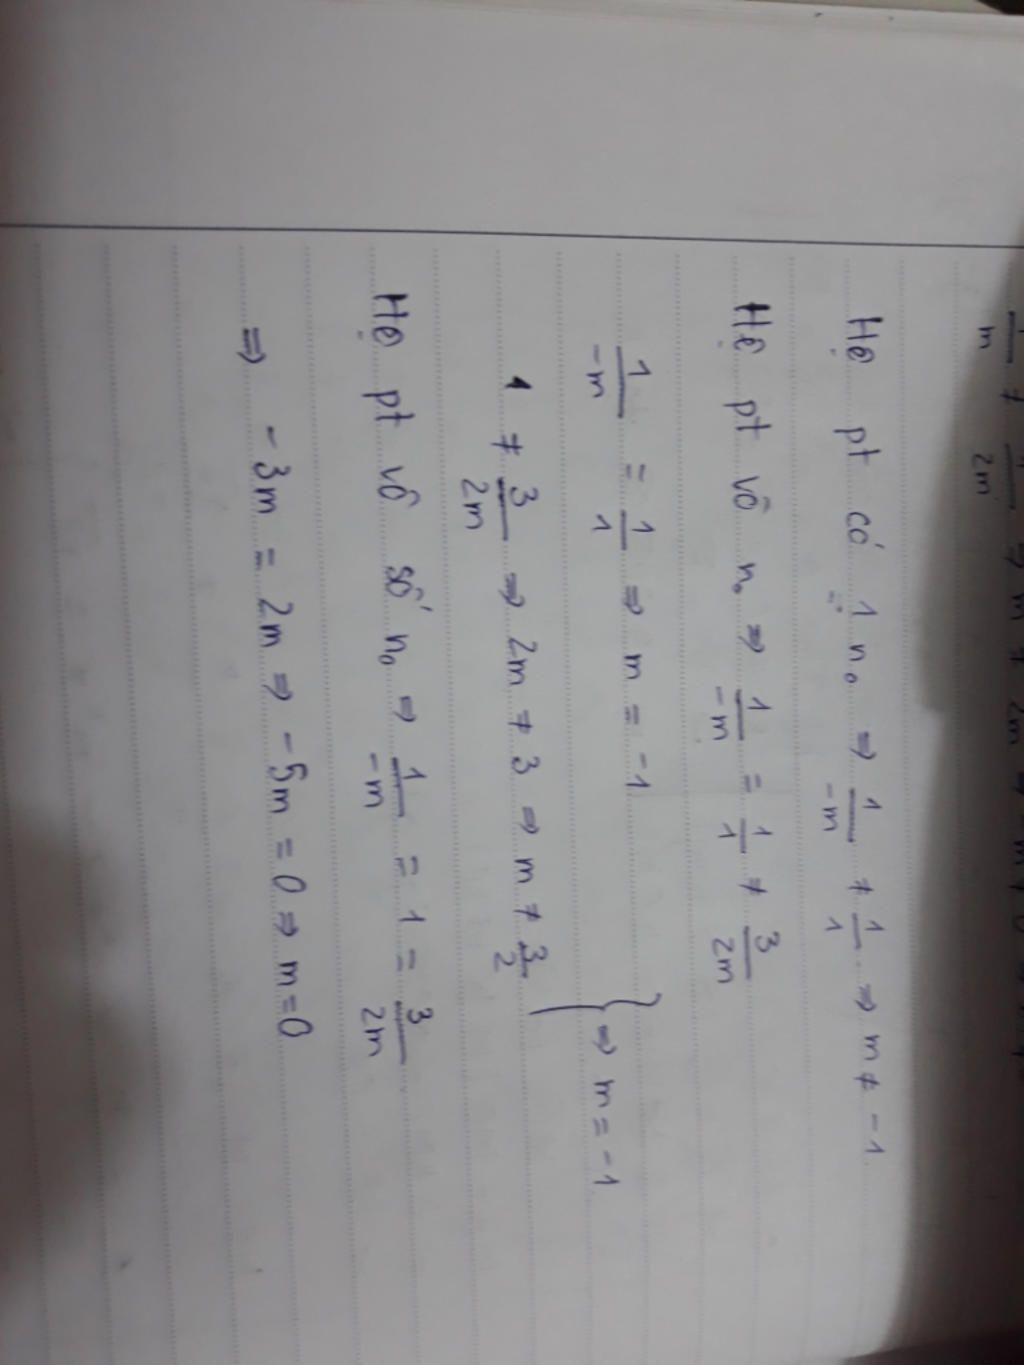 1/m ≠ 1/2m ⇒ m ≠ 2m ⇒
Hệ pt có 1 n₀ ⇒ 1/-m ≠ 1/1 ⇒ m ≠ -1
Hệ pt vô n₀ ⇒ 1/-m = 1/1 ≠ 3/2m
1/-m = 1/1 ⇒ m = -1
} ⇒ m = -1
1 ≠ 3/2m ⇒ 2m ≠ 3 ⇒ m ≠ 3/2
Hệ pt vô số n₀ ⇒ 1/-m = 1 = 3/2m
⇒ -3m = 2m ⇒ -5m = 0 ⇒ m = 0